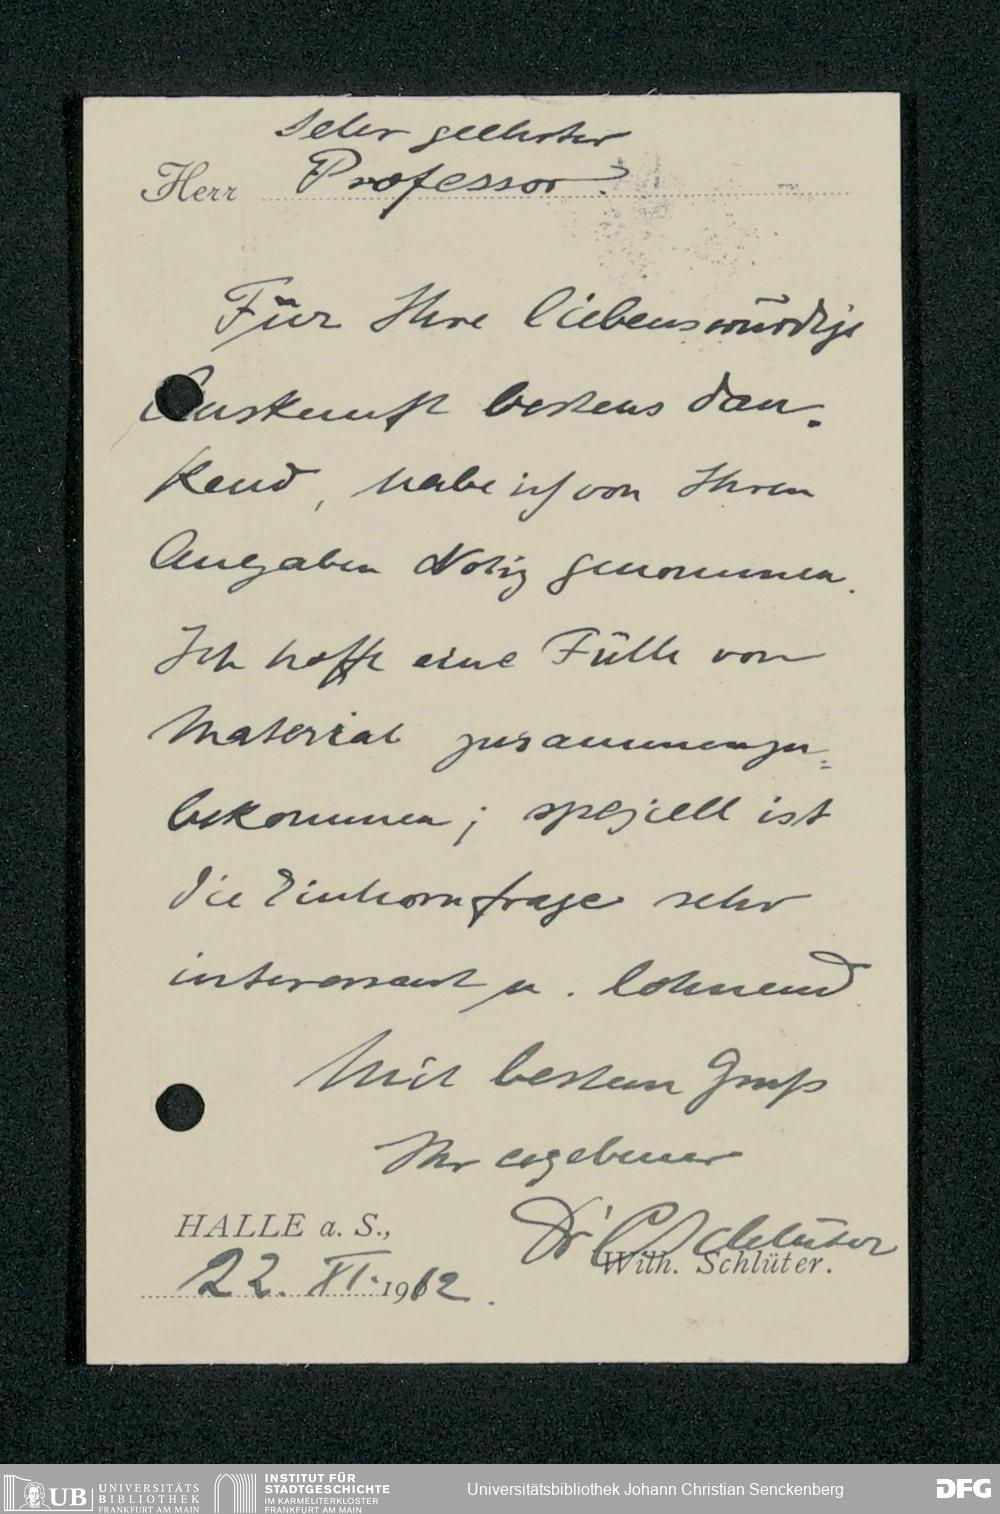 Sehr geehrter
Herr Professor!
Für Ihre liebenswürdige
Auskunft bestens dan-
kend, habe ich von Ihren
Angaben Notiz genommen.
Ich hoffe eine Fülle von
Material zusammenzu=
bekommen; speziell ist
die Einhornfrage sehr
interessant u. lohnend
Mit bestem Gruß
Ihr ergebener
Dr C Schlüter
HALLE a. S.,
Wilh. Schlüter.
22. XI. 1912.
UB UNIVERSITÄTS
BIBLIOTHEK
FRANKFURT AM MAIN
INSTITUT FÜR
STADTGESCHICHTE
IM KARMELITERKLOSTER
FRANKFURT AM MAIN
Universitätsbibliothek Johann Christian Senckenberg
DFG